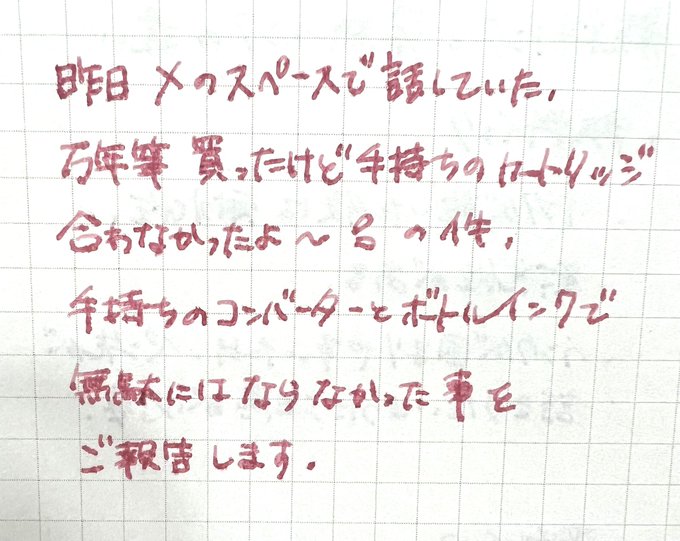 昨日 Xのスペースで話していた.
万年筆 買ったけど手持ちのカートリッジ
合わなかったよ〜 の件.
手持ちのコンバーターとボトルインクで
無駄にはならなかった事を
ご報告します.